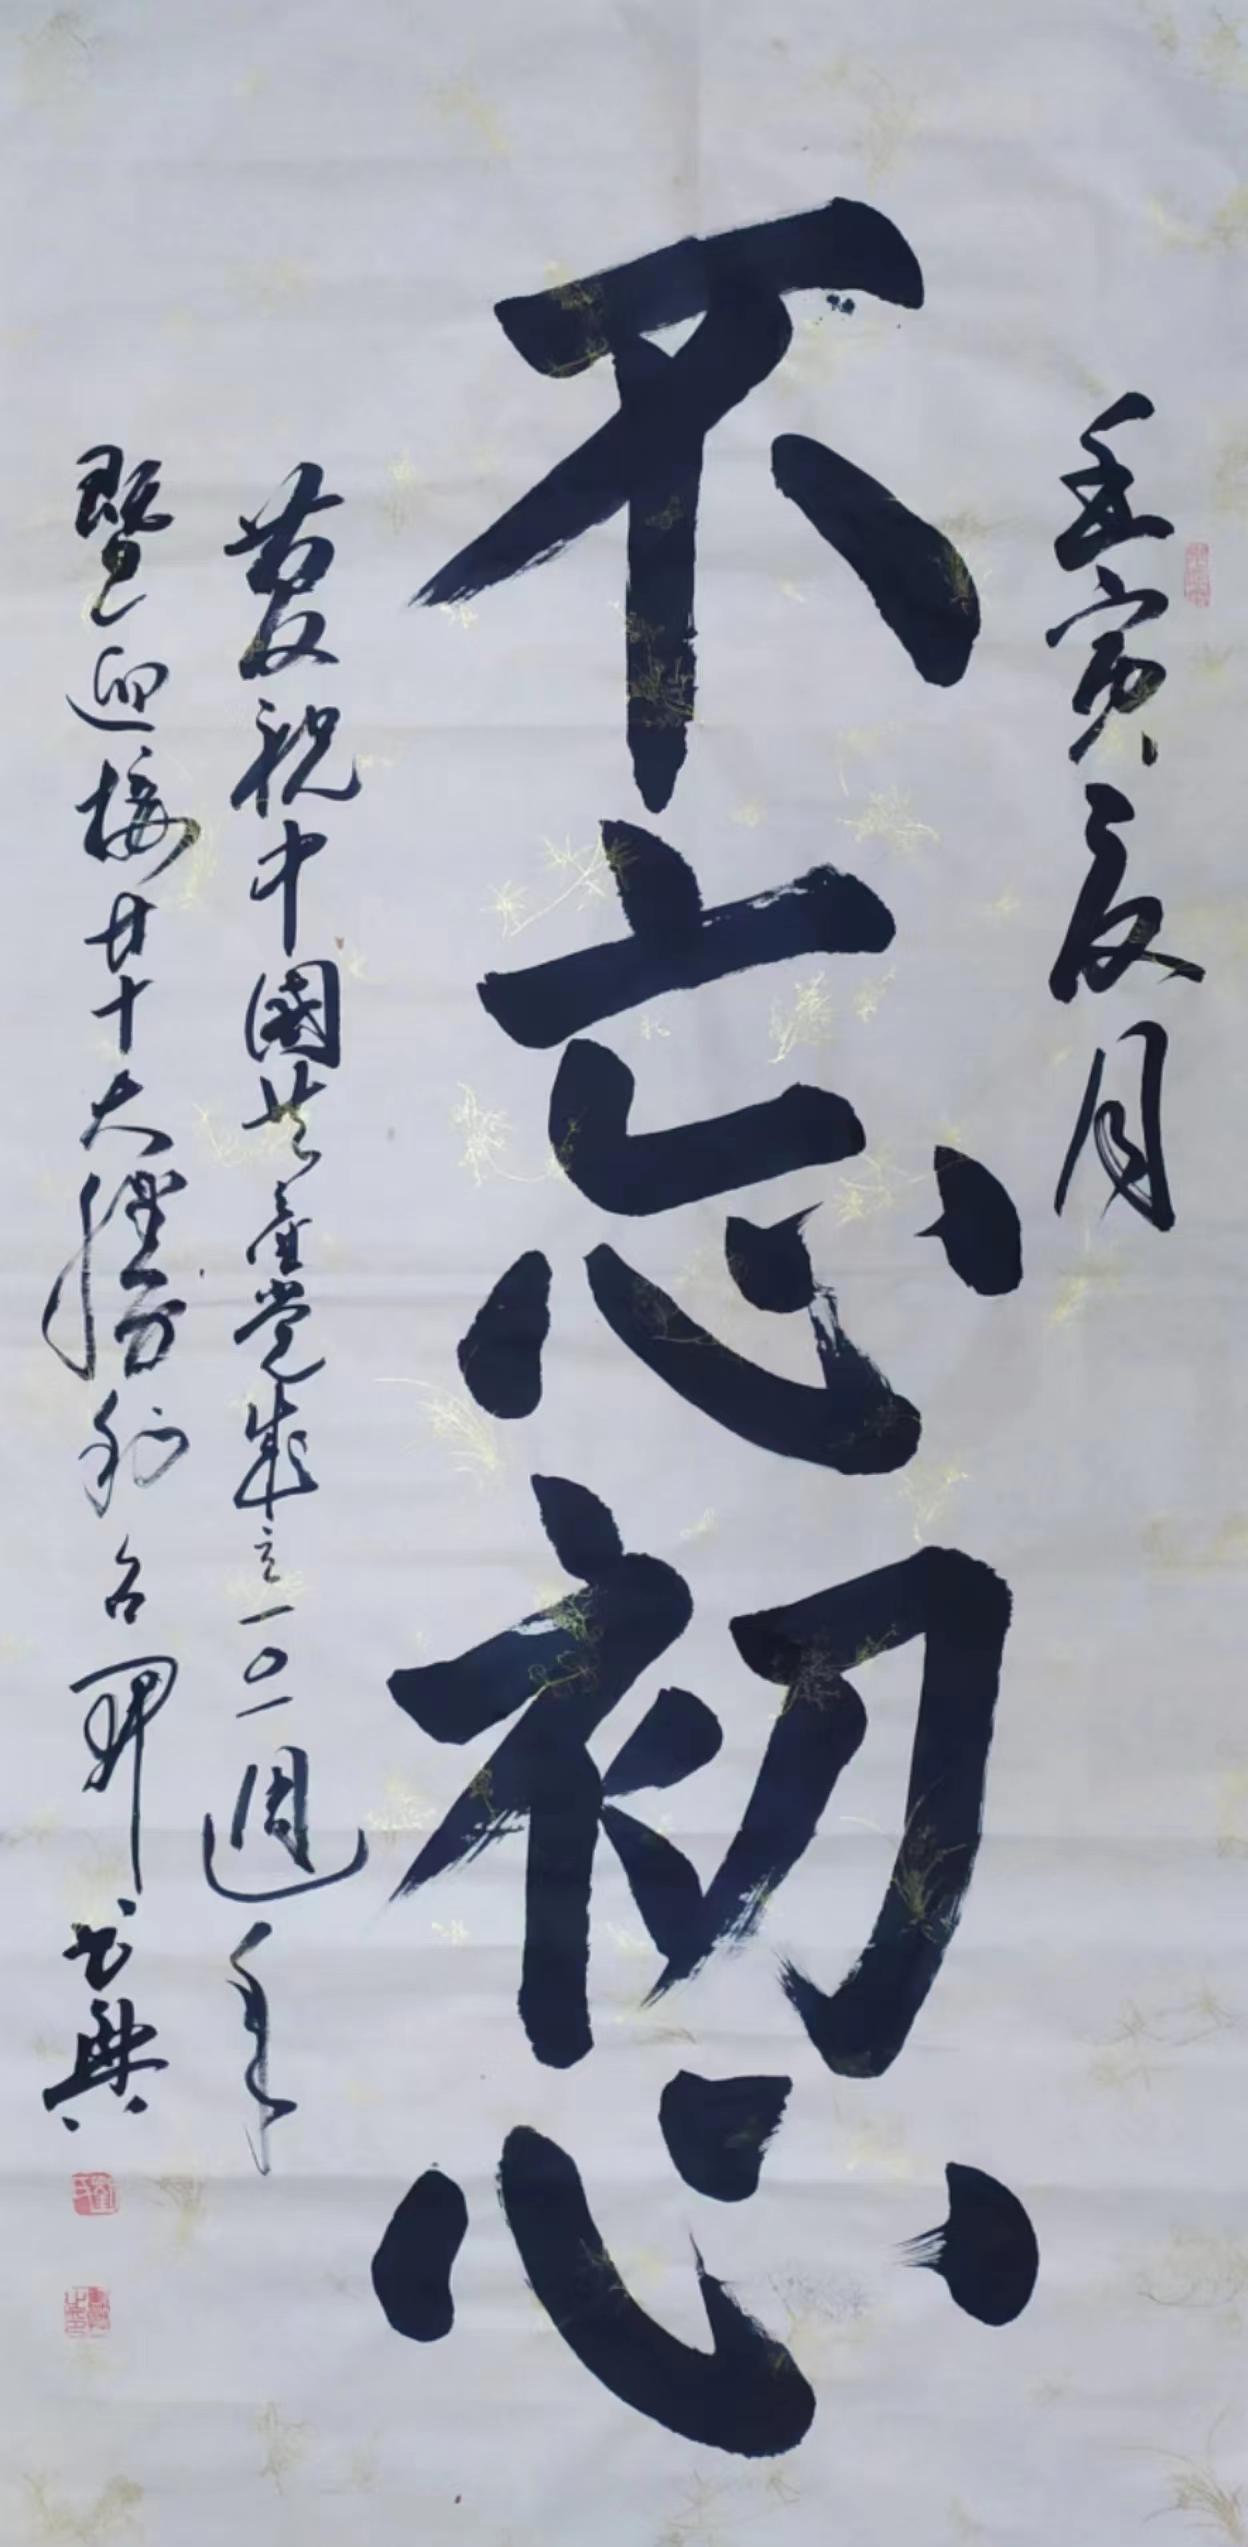 壬寅夏月
不忘初心
慶祝中國共產党成立一〇一週年
暨迎接廿十大勝利召開 書興